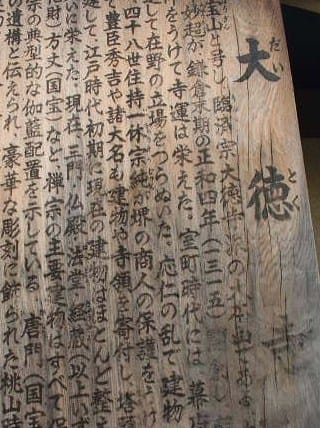 大徳寺
だいとく
宝山と号し、臨済宗大徳寺派の大本山である
妙超が鎌倉末期の正和四年(一三一五
をうけて寺運は栄えた。室町時代には幕
して在野の立場をつらぬいた。応仁の乱で建物
四十八世住持一休宗純が堺の商人の保護をう
豊臣秀吉や諸大名も建物や寺領を寄付し、塔
して、江戸時代初期に現在の建物はほとんど整
いに栄えた。現在、三門、仏殿、法堂、経蔵(以上いず
財)、方丈(国宝)など、禅宗の主要建物はすべて
宗の典型的な伽藍配置を示している。唐門(国宝
の遺構と伝えられ、豪華な彫刻に飾られた桃山時